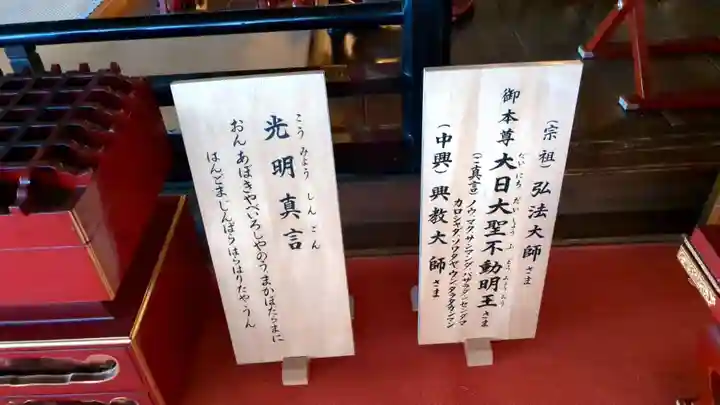 (宗祖)弘法大師さま
御本尊 大日大聖不動明王さま
だいにちだいしょうふどうみょうおう
(ご真言)ノウマクサンマンダ・バザラダンセンダマ
カロシャダ・ソワタヤ・ウンタラタカンマン
(中興)興教大師さま
光明真言
こうみょうしんごん
おん あぼきゃべいろしゃのうまかぼだらまに
はんどまじんばらはらばりたや・うん